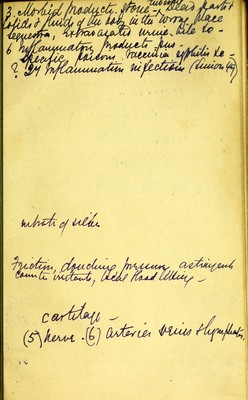 3. Morbid products. Stone - Dead parts
Solids & fluids of the body in the wrong place
Sequestra, Extravasated urine, bile &c -
6 Inflammatory products pus -
Specific poisons. Vaccinia syphilis &c -
? Is Inflammation infectious (Simon 49)
nitrate of silver
Friction, douching pressure astringents
counter irritants, local blood letting -
cartilage -
(5) Nerve - (6) Arteries Veins & lymphatics